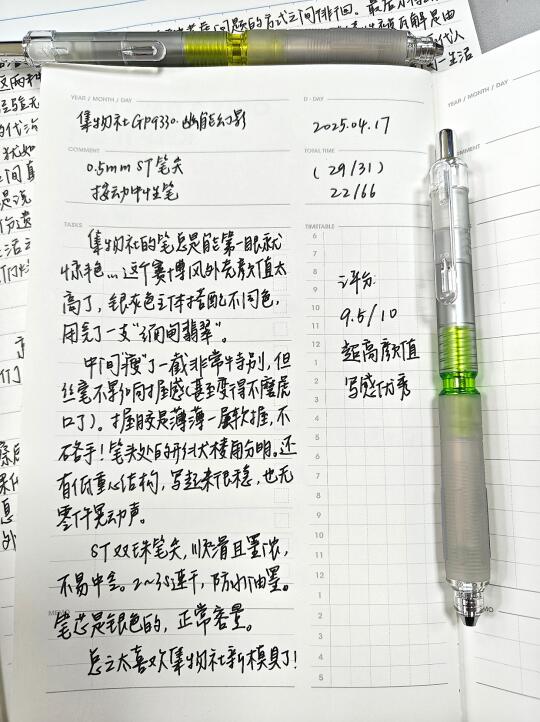 YEAR / MONTH / DAY
集物社GP9330·幽能幻影
D-DAY
2025.04.17
COMMENT
0.5mm ST笔尖
按动中性笔
TOTAL TIME
(29/31)
22/66
TASKS
集物社的笔总是能第一眼就
惊艳...这个赛博风外壳颜值太
高了,银灰色主体搭配不同色,
用完了一支"缅甸翡翠"。
中间"瘦"了一截非常特别,但
丝毫不影响握感(甚至变得不磨虎
口了)。握胶是薄薄一层软握,不
硌手!笔头处的形状棱角分明。还
有低重心结构,写起来很稳,也无
零件晃动声。
ST双珠笔尖,顺滑且墨浓,
不易冲舍。2~3S速干,防水油墨。
笔芯是银色的,正常容量。
总之太喜欢集物社新模具了!
TIMETABLE
评分:
9.5/10
超高颜值
写感优秀
6
7
8
9
10
11
12
1
2
3
4
5
6
7
8
9
10
11
12
1
2
3
4
5
MEMO
YEAR / MONTH / DAY
COMMENT